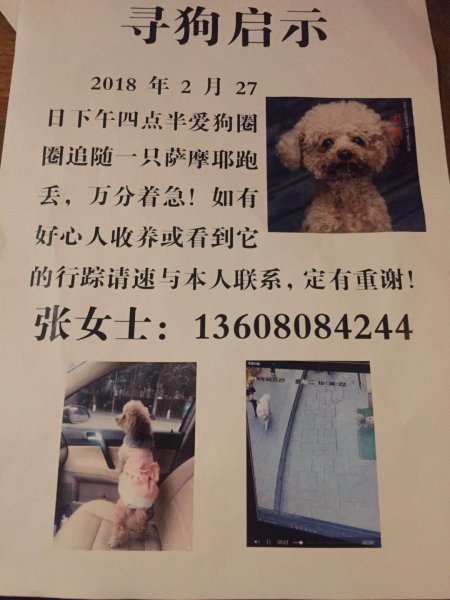 寻狗启示
2018 年 2 月 27
日下午四点半爱狗圈
圈追随一只萨摩耶跑
丢，万分着急！如有
好心人收养或看到它
的行踪请速与本人联系，定有重谢！
张女士：13608084244